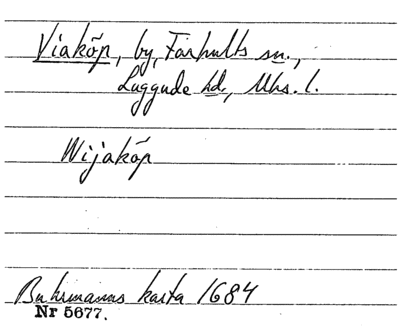 Viaköp, by, Farhults sn.,
Luggude hd., Mhs. l.
Wijaköp
Buhrmanns karta 1684
Nr 5677.